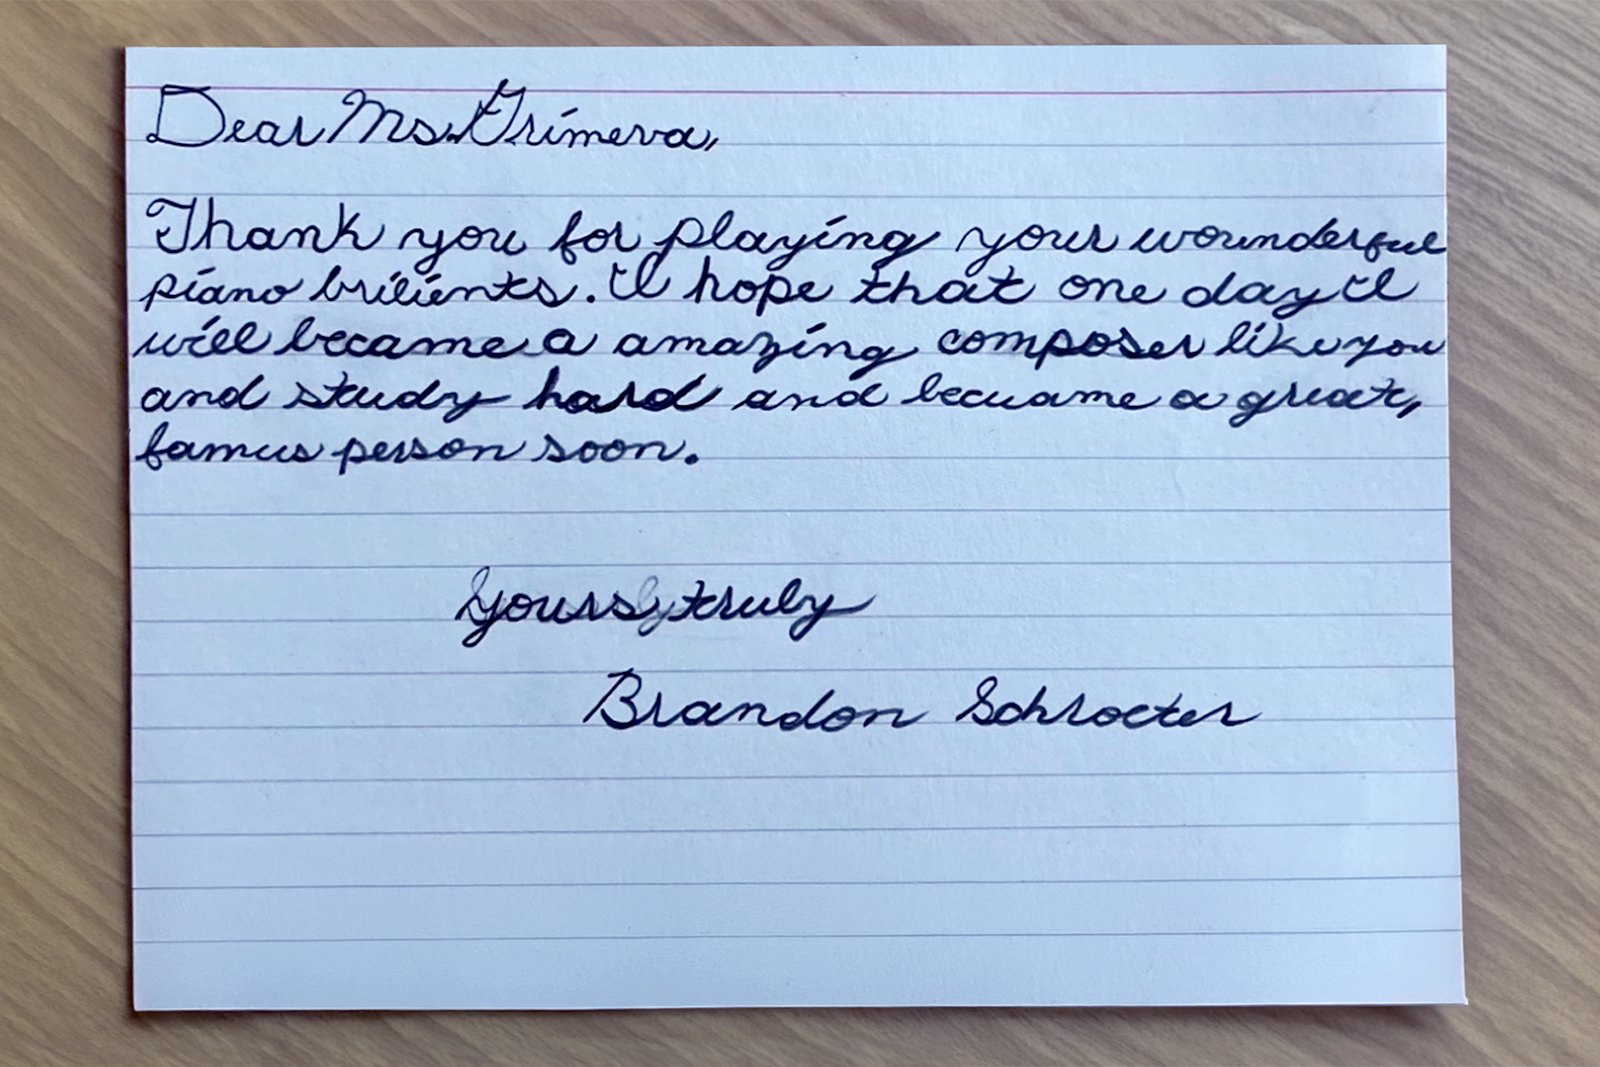 Dear Ms. Grimerva,
Thank you for playing your wounderful
piano brilients. I hope that one day I
will became a amazing composer like you
and study hard and becuame a great,
famus person soon.
Yours truly
Brandon Schroeter